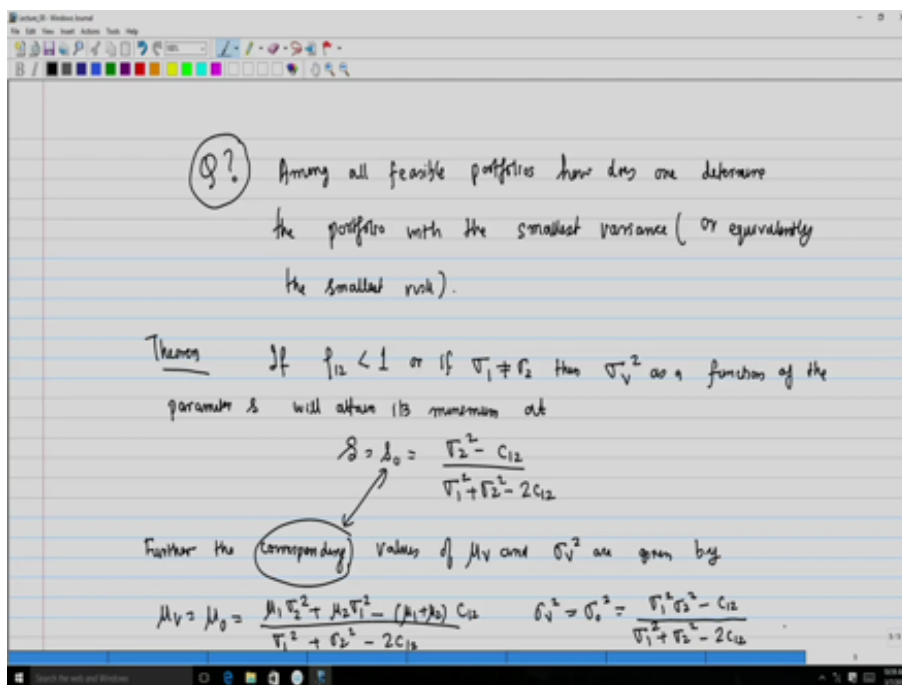 Lecture_05 - Windows Journal
File Edit View Insert Actions Tools Help
Q? Among all feasible portfolios how does one determine
the portfolio with the smallest variance ( or equivalently
the smallest risk).
Theorem If ρ₁₂ < 1 or if σ₁ ≠ σ₂ then σ_V² as a function of the
parameter s will attain its minimum at
s = s₀ = (σ₂² - c₁₂) / (σ₁² + σ₂² - 2c₁₂)
Further the corresponding values of μ_V and σ_V² are given by
μ_V = μ₀ = (μ₁σ₂² + μ₂σ₁² - (μ₁+μ₂) c₁₂) / (σ₁² + σ₂² - 2c₁₂) σ_V² = σ₀² = (σ₁²σ₂² - c₁₂) / (σ₁² + σ₂² - 2c₁₂)
Search the web and Windows